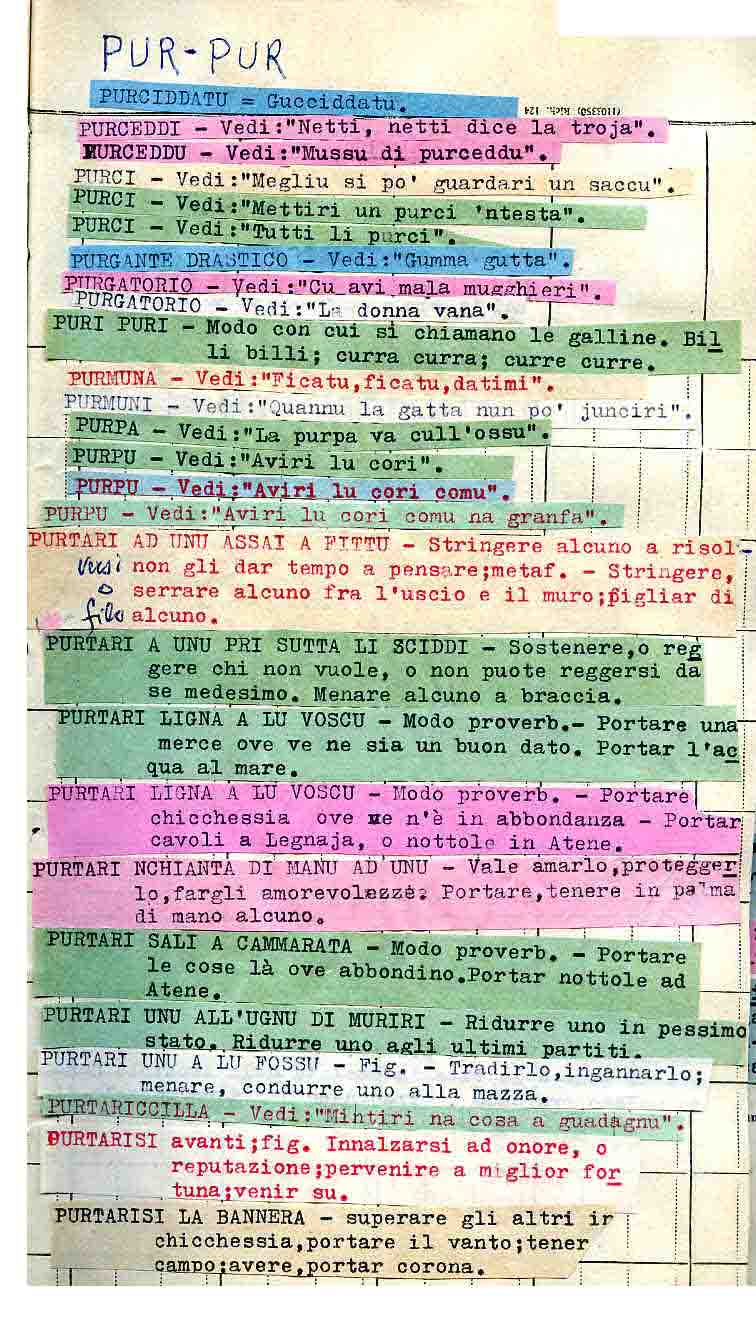 PUR-PUR
PURCIDDATU = Gucciddatu.
(1103350) Rich. 124
PURCEDDI - Vedi:"Netti, netti dice la troja".
PURCEDDU - Vedi:"Mussu di purceddu".
PURCI - Vedi:"Megliu si po' guardari un saccu".
PURCI - Vedi:"Mettiri un purci 'ntesta".
PURCI - Vedi:"Tutti li purci".
PURGANTE DRASTICO - Vedi:"Gumma gutta".
PURGATORIO - Vedi:"Cu avi mala mugghieri".
PURGATORIO - Vedi:"La donna vana".
PURI PURI - Modo con cui si chiamano le galline. Bil
li billi; curra curra; curre curre.
PURMUNA - Vedi:"Ficatu,ficatu,datimi".
PURMUNI - Vedi:"Quannu la gatta nun po' junciri".
PURPA - Vedi:"La purpa va cull'ossu".
PURPU - Vedi:"Aviri lu cori".
PURPU - Vedi:"Aviri lu cori comu".
PURPU - Vedi:"Aviri lu cori comu na granfa".
PURTARI AD UNU ASSAI A FITTU - Stringere alcuno a risol-
versi non gli dar tempo a pensare;metaf. - Stringere,
o serrare alcuno fra l'uscio e il muro;pigliar di
filo alcuno.
PURTARI A UNU PRI SUTTA LI SCIDDI - Sostenere,o reg
gere chi non vuole, o non puote reggersi da
se medesimo. Menare alcuno a braccia.
PURTARI LIGNA A LU VOSCU - Modo proverb.- Portare una
merce ove ve ne sia un buon dato. Portar l'ac
qua al mare.
PURTARI LIGNA A LU VOSCU - Modo proverb. - Portare
chicchessia ove ve n'è in abbondanza - Portar
cavoli a Legnaja, o nottole in Atene.
PURTARI NCHIANTA DI MANU AD'UNU - Vale amarlo,protegger
lo,fargli amorevolezze. Portare,tenere in palma
di mano alcuno.
PURTARI SALI A CAMMARATA - Modo proverb. - Portare
le cose là ove abbondino.Portar nottole ad
Atene.
PURTARI UNU ALL'UGNU DI MURIRI - Ridurre uno in pessimo
stato. Ridurre uno agli ultimi partiti.
PURTARI UNU A LU FOSSU - Fig. - Tradirlo,ingannarlo;
menare, condurre uno alla mazza.
PURTARICCILLA - Vedi:"Mintiri na cosa a guadagnu".
PURTARISI avanti;fig. Innalzarsi ad onore, o
reputazione;pervenire a miglior for
tuna;venir su.
PURTARISI LA BANNERA - superare gli altri in
chicchessia,portare il vanto;tener
campo;avere,portar corona.